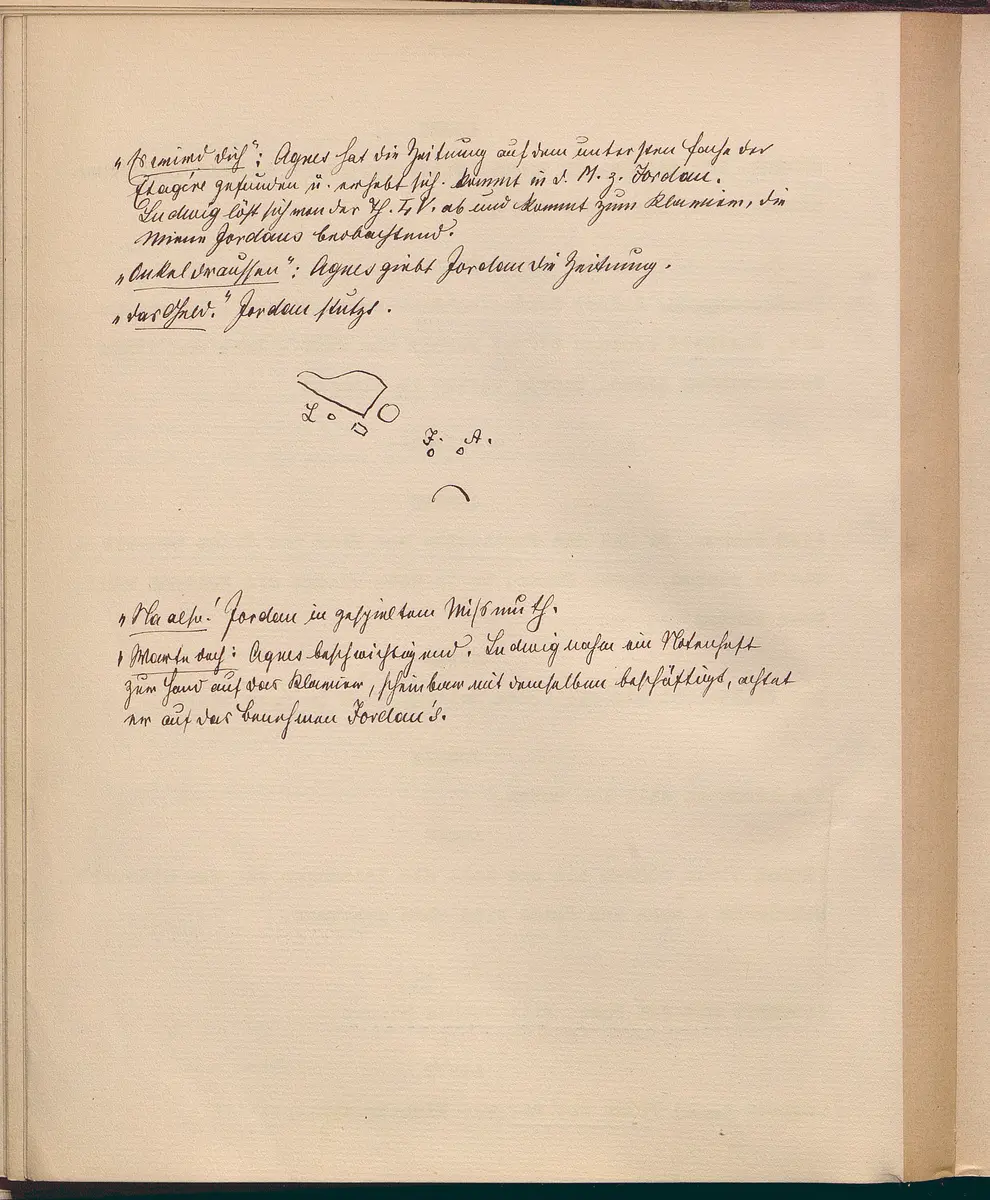 „Es wird dich“: Agnes hat die Zeitung auf dem untersten Fache der
Etagére gefunden u. erhebt sich. kommt in d. M. z. Jordan.
Ludwig löst sich von der Th. L. V. ab und kommt zum Klavier, die
Miene Jordans beobachtend.
„Onkel draussen“: Agnes giebt Jordan die Zeitung.
„das Geld.“ Jordan stutzt.
L
J. A.
„Na also! Jordan in gespieltem Missmuth.
„Warte doch: Agnes beschwichtigend. Ludwig nahm ein Notenheft
zur Hand auf das Klavier, scheinbar mit demselben beschäftigt, achtet
er auf das Benehmen Jordan's.